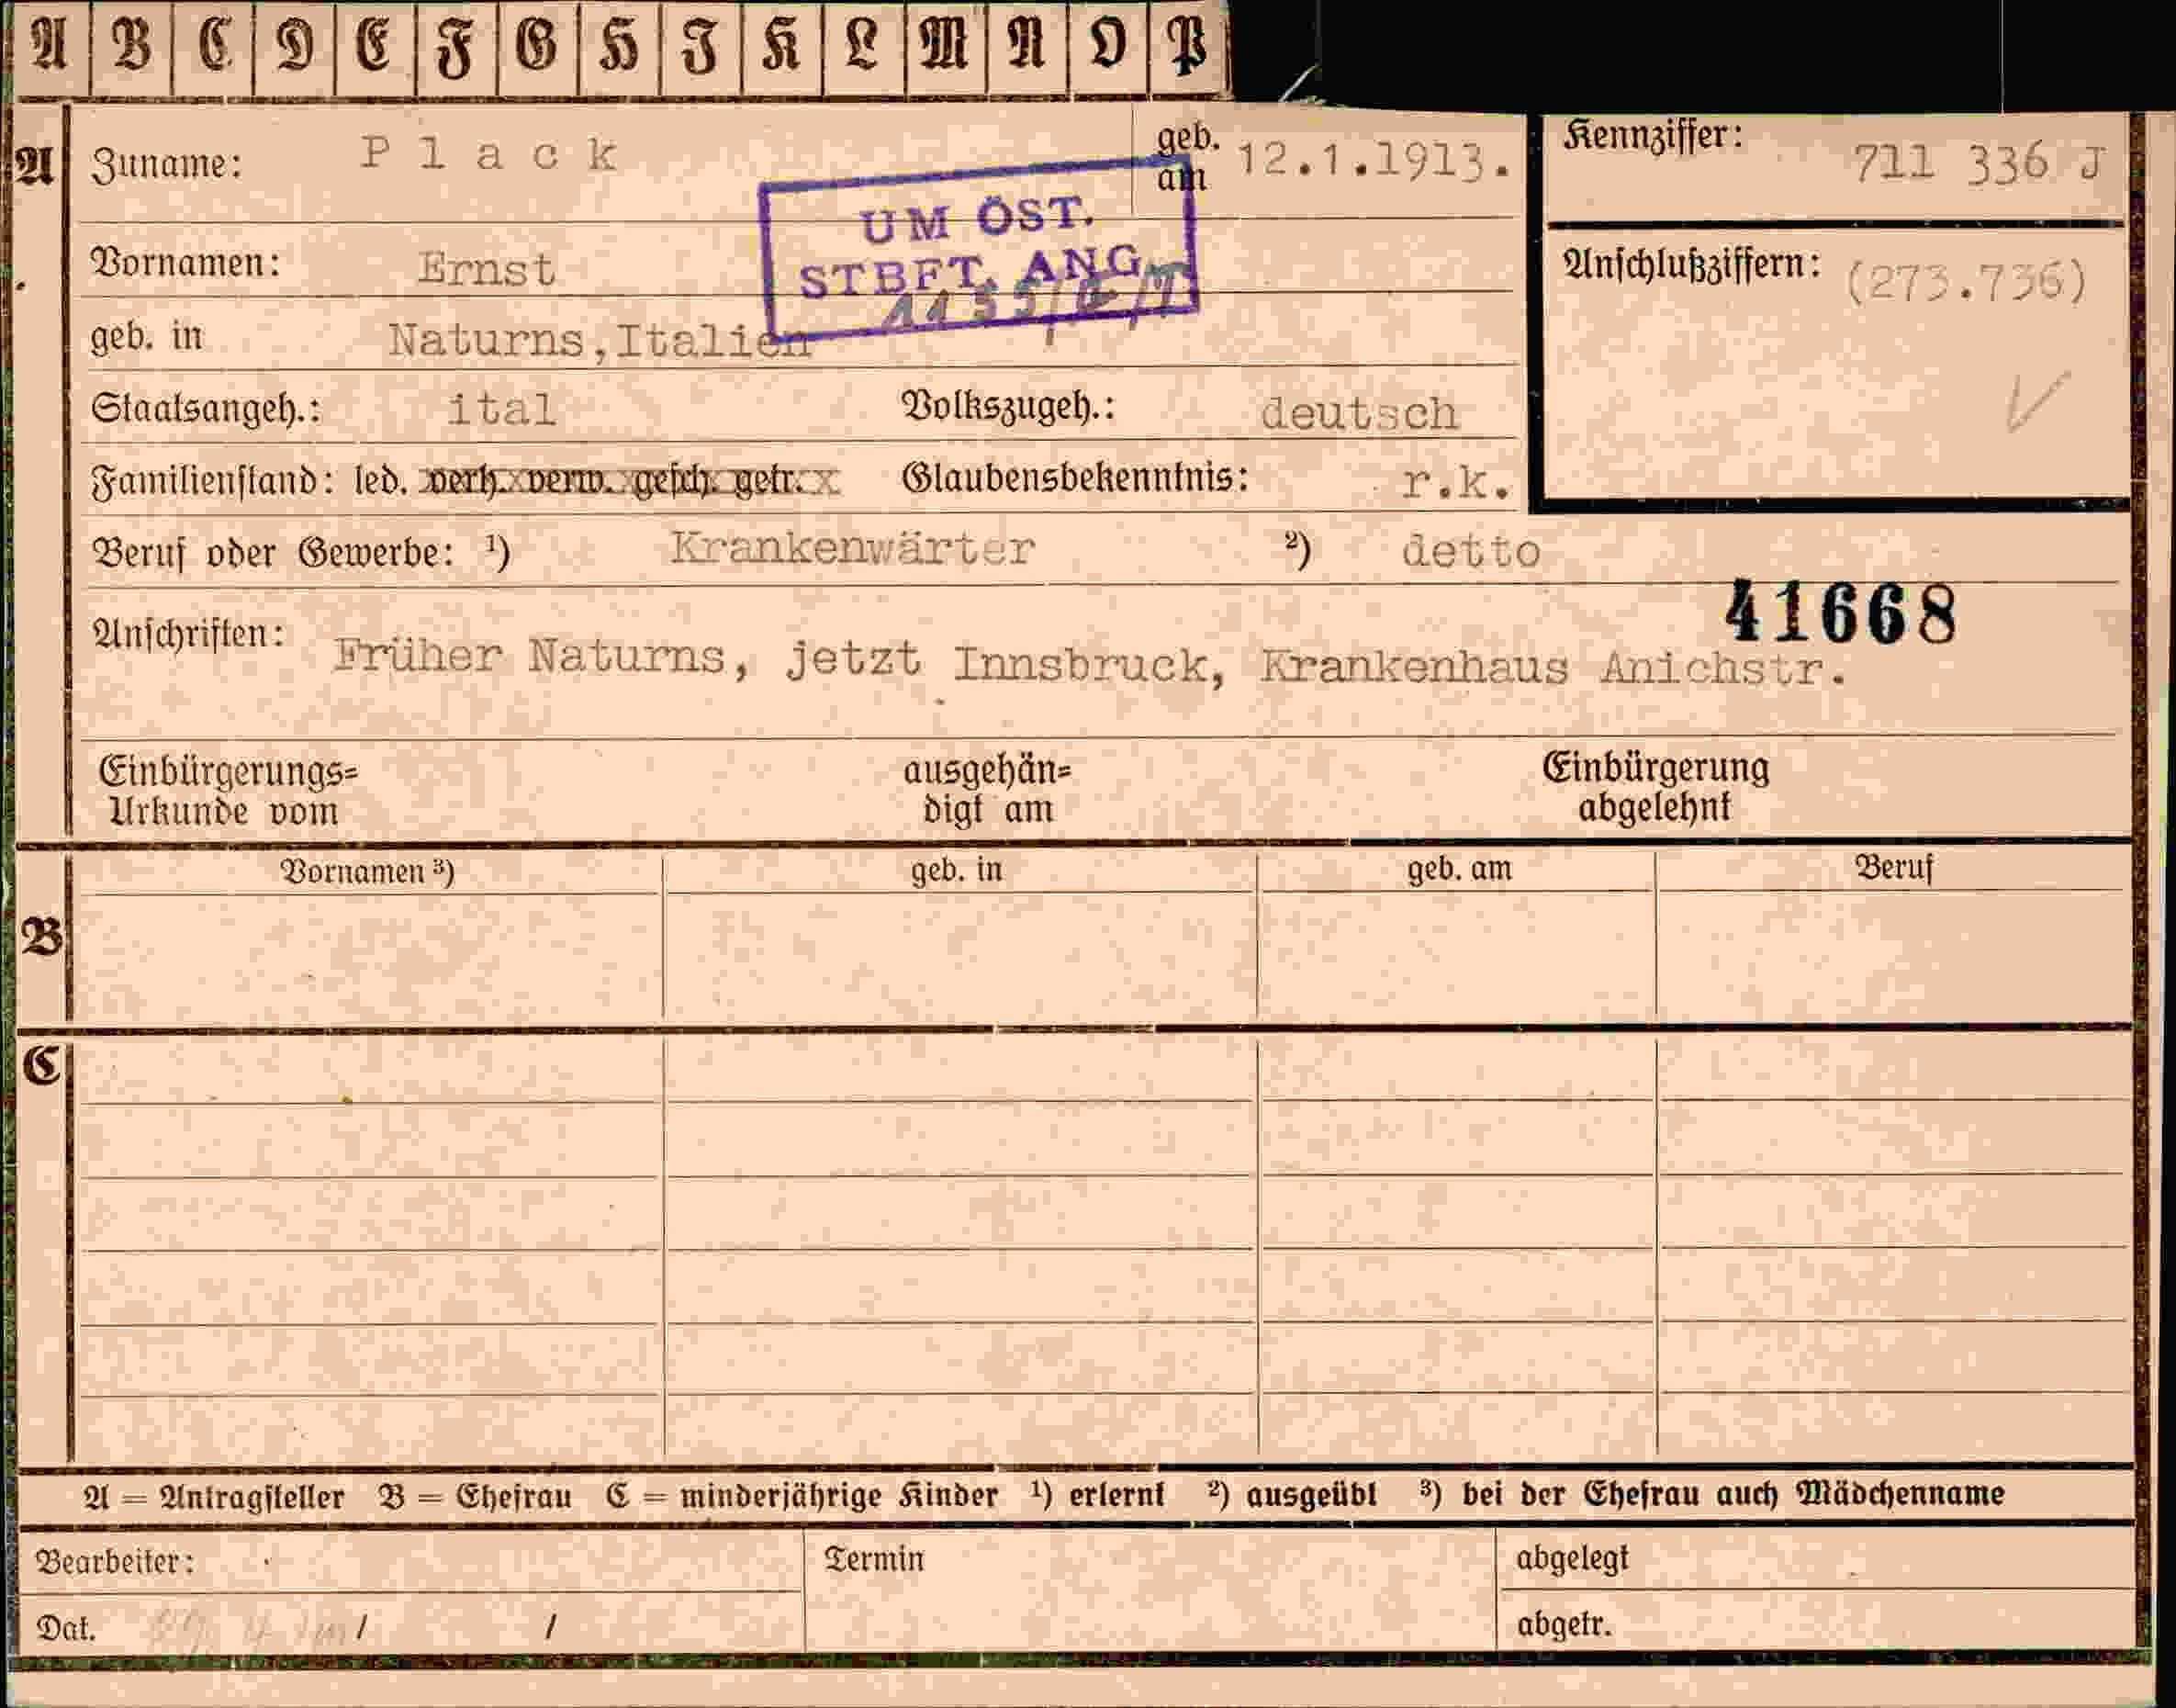 A B C D E F G H J K L M N O P
A Zuname: Plack geb. am 12.1.1913. Kennziffer: 711 336 J
UM ÖST.
STBFT. ANG.
Vornamen: Ernst Anschlußziffern: (273.736)
geb. in Naturns,Italien
Staatsangeh.: ital Volkszugeh.: deutsch
Familienstand: led. verh. verw. gesch. getr. Glaubensbekenntnis: r.k.
Beruf oder Gewerbe: ¹) Krankenwärter ²) detto
41668
Anschriften: Früher Naturns, jetzt Innsbruck, Krankenhaus Anichstr.
Einbürgerungs= ausgehän= Einbürgerung
Urkunde vom digt am abgelehnt
Vornamen ³) geb. in geb. am Beruf
B
C
A = Antragsteller B = Ehefrau C = minderjährige Kinder ¹) erlernt ²) ausgeübt ³) bei der Ehefrau auch Mädchenname
Bearbeiter: Termin abgelegt
Dat. / / abgetr.